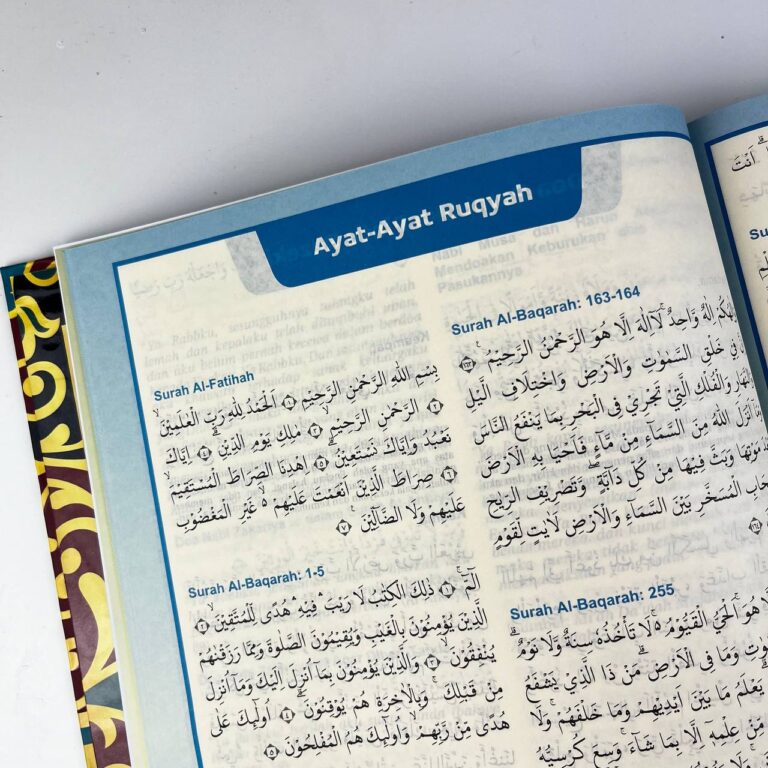 Ayat-Ayat Ruqyah
Surah Al-Fatihah
بِسْمِ اللّٰهِ الرَّحْمٰنِ الرَّحِيْمِ ۝١ اَلْحَمْدُ لِلّٰهِ رَبِّ الْعٰلَمِيْنَۙ
۝٢ الرَّحْمٰنِ الرَّحِيْمِۙ ۝٣ مٰلِكِ يَوْمِ الدِّيْنِۗ ۝٤ اِيَّاكَ
نَعْبُدُ وَاِيَّاكَ نَسْتَعِيْنُۗ ۝٥ اِهْدِنَا الصِّرَاطَ الْمُسْتَقِيْمَۙ
۝٦ صِرَاطَ الَّذِيْنَ اَنْعَمْتَ عَلَيْهِمْ ەۙ غَيْرِ الْمَغْضُوْبِ
عَلَيْهِمْ وَلَا الضَّاۤلِّيْنَ ۝٧
Surah Al-Baqarah: 1-5
الۤمّۤۚ ۝١ ذٰلِكَ الْكِتٰبُ لَا رَيْبَۛ فِيْهِۛ هُدًى لِّلْمُتَّقِيْنَۙ ۝٢
الَّذِيْنَ يُؤْمِنُوْنَ بِالْغَيْبِ وَيُقِيْمُوْنَ الصَّلٰوةَ وَمِمَّا رَزَقْنٰهُمْ
يُنْفِقُوْنَۙ ۝٣ وَالَّذِيْنَ يُؤْمِنُوْنَ بِمَآ اُنْزِلَ اِلَيْكَ وَمَآ اُنْزِلَ
مِنْ قَبْلِكَۚ وَبِالْاٰخِرَةِ هُمْ يُوْقِنُوْنَۗ ۝٤ اُولٰۤىِٕكَ عَلٰى
هُدًى مِّنْ رَّبِّهِمْۙ وَاُولٰۤىِٕكَ هُمُ الْمُفْلِحُوْنَ ۝٥
Surah Al-Baqarah: 163-164
اِلٰهٌ وَّاحِدٌۚ لَآ اِلٰهَ اِلَّا هُوَ الرَّحْمٰنُ الرَّحِيْمُ ۝١٦٣
فِيْ خَلْقِ السَّمٰوٰتِ وَالْاَرْضِ وَاخْتِلَافِ الَّيْلِ
وَالْفُلْكِ الَّتِيْ تَجْرِيْ فِى الْبَحْرِ بِمَا يَنْفَعُ النَّاسَ
اَنْزَلَ اللّٰهُ مِنَ السَّمَاۤءِ مِنْ مَّاۤءٍ فَاَحْيَا بِهِ الْاَرْضَ
مَوْتِهَا وَبَثَّ فِيْهَا مِنْ كُلِّ دَاۤبَّةٍۖ وَّتَصْرِيْفِ الرِّيٰحِ
الْمُسَخَّرِ بَيْنَ السَّمَاۤءِ وَالْاَرْضِ لَاٰيٰتٍ لِّقَوْمٍ
Surah Al-Baqarah: 255
هُوَۚ اَلْحَيُّ الْقَيُّوْمُ ەۚ لَا تَأْخُذُهٗ سِنَةٌ وَّلَا نَوْمٌۗ
وَمَا فِى الْاَرْضِۗ مَنْ ذَا الَّذِيْ يَشْفَعُ
يَعْلَمُ مَا بَيْنَ اَيْدِيْهِمْ وَمَا خَلْفَهُمْۚ وَلَا
مِّنْ عِلْمِهٖٓ اِلَّا بِمَا شَاۤءَۚ وَسِعَ كُرْسِيُّهُ
اَنْتَ